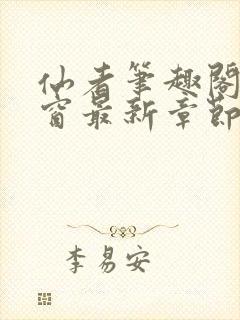 仙者笔趣阁
窗最新章节
李易安